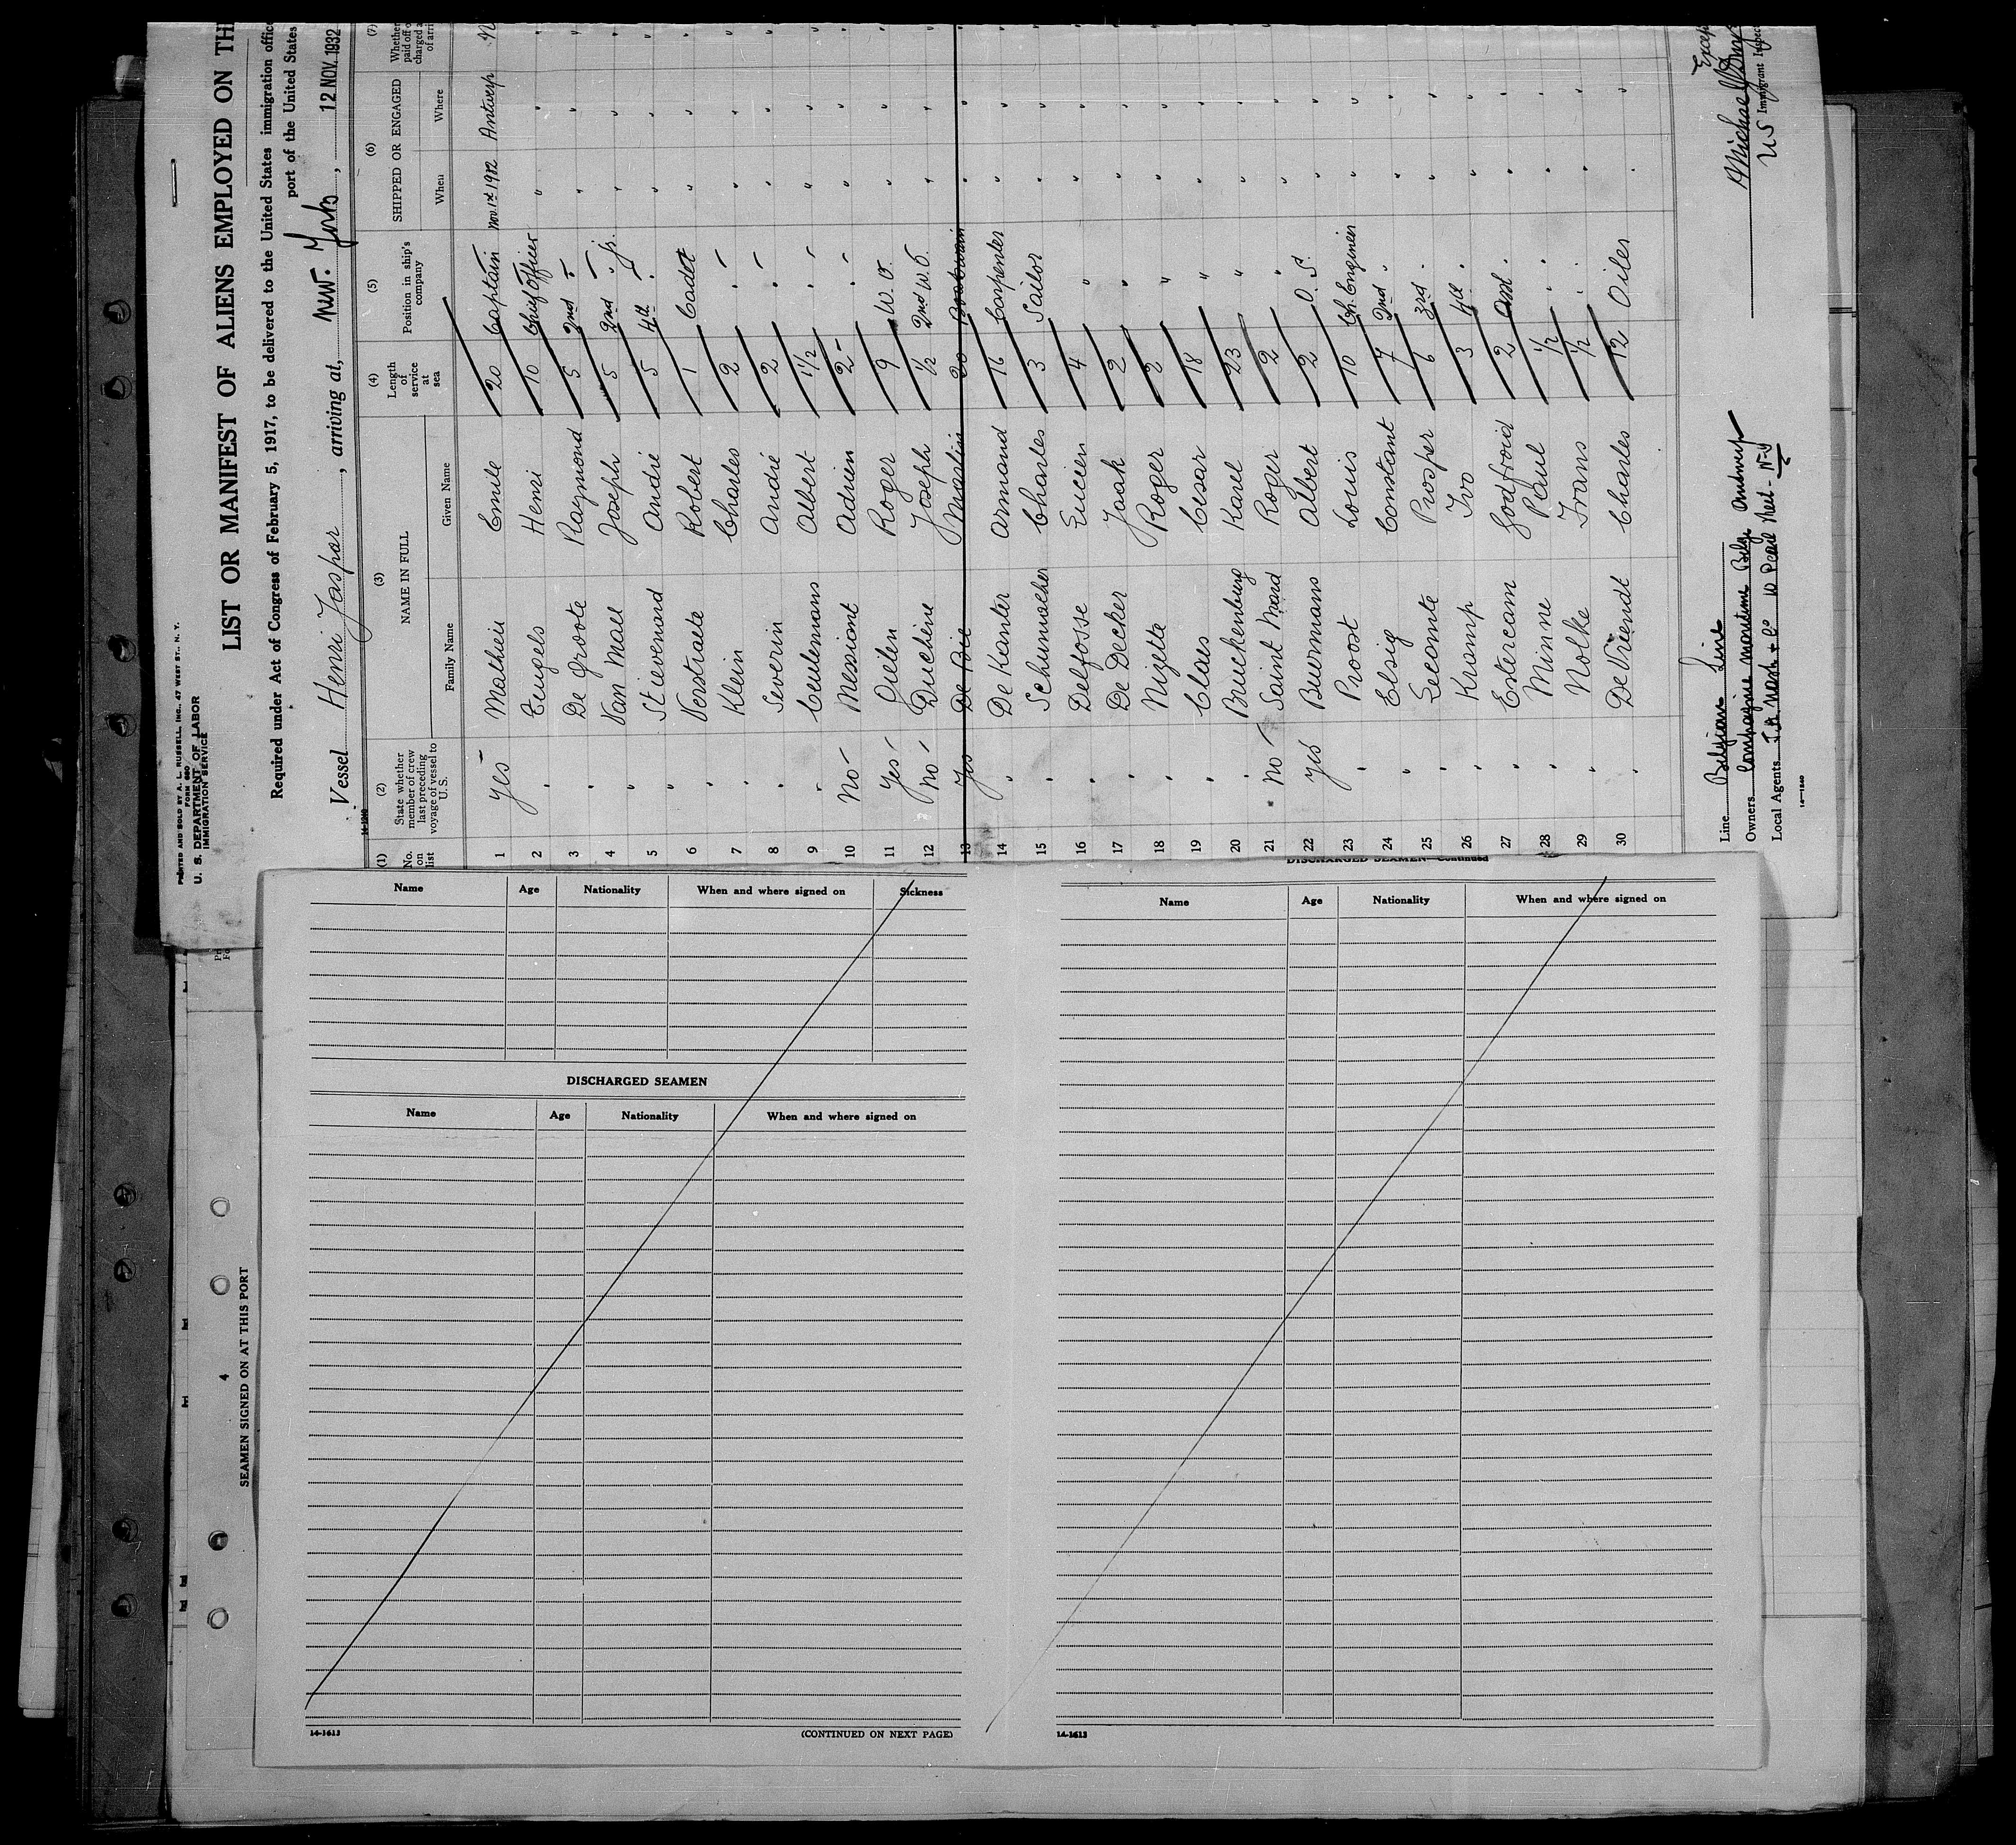 PRINTED AND SOLD BY A. L. RUSSELL, INC., 47 WEST ST., N. Y.
FORM 680
U. S. DEPARTMENT OF LABOR
IMMIGRATION SERVICE
LIST OR MANIFEST OF ALIENS EMPLOYED ON TH
Required under Act of Congress of February 5, 1917, to be delivered to the United States immigration offic
port of the United States
Vessel Henri Jaspar, arriving at, New York, 12 NOV. 1932
14-1240
(1) (2) (3) (4) (5) (6) (7)
No. on list State whether member of crew last preceding voyage of vessel to U. S. NAME IN FULL Length of service at sea Position in ship's company SHIPPED OR ENGAGED Whether paid off o charged a of arri
Family Name Given Name When Where
1 Yes Mathieu Emile 20 Captain Nov. 1st 1932 Antwerp
2 " Tugels Henri 10 Chief Officer " "
3 " De Groote Raymond 5 2nd " " "
4 " Van Mall Joseph 5 2nd " Jr. " "
5 " Stievenard André 5 4th " " "
6 " Verstraete Robert 1 Cadet " "
7 " Klein Charles 2 " " "
8 " Severin André 2 " " "
9 " Ceulemans Albert 1 1/2 " " "
10 No Messiant Adrien 2 " " "
11 Yes Gielen Roger 9 W. O. " "
12 No Duchêne Joseph 1/2 2nd W. O. " "
13 Yes De Bie Martin 20 Boatswain " "
14 " De Kanter Armand 16 Carpenter " "
15 " Schumacher Charles 3 Sailor " "
16 " Delfosse Lucien 4 " " "
17 " De Decker Jaak 2 " " "
18 " Nizette Roger 2 " " "
19 " Claes Cesar 18 " " "
20 " Bruckenburg Karel 23 " " "
21 No Saint Mard Roger 2 " " "
22 Yes Buermans Albert 2 O. S. " "
23 " Proost Louis 10 Ch. Engineer " "
24 " Elsig Constant 7 2nd " " "
25 " Lecomte Prosper 6 3rd " " "
26 " Kramp Ivo 3 4th " " "
27 " Estercam Godfroid 2 " " "
28 " Minne Paul 1/2 " " "
29 " Nolke Frans 1/2 " " "
30 " De Vriendt Charles 12 Oiler " "
Line Belgian Line
Owners Compagnie Maritime Belge Antwerp
Local Agents 10 Pearl Street - N-Y
14-1240
U S Immigrant Inspec
DISCHARGED SEAMEN—Continued
4
SEAMEN SIGNED ON AT THIS PORT
Name Age Nationality When and where signed on Sickness
DISCHARGED SEAMEN
Name Age Nationality When and where signed on
14-1613 (CONTINUED ON NEXT PAGE)
Name Age Nationality When and where signed on
14-1613